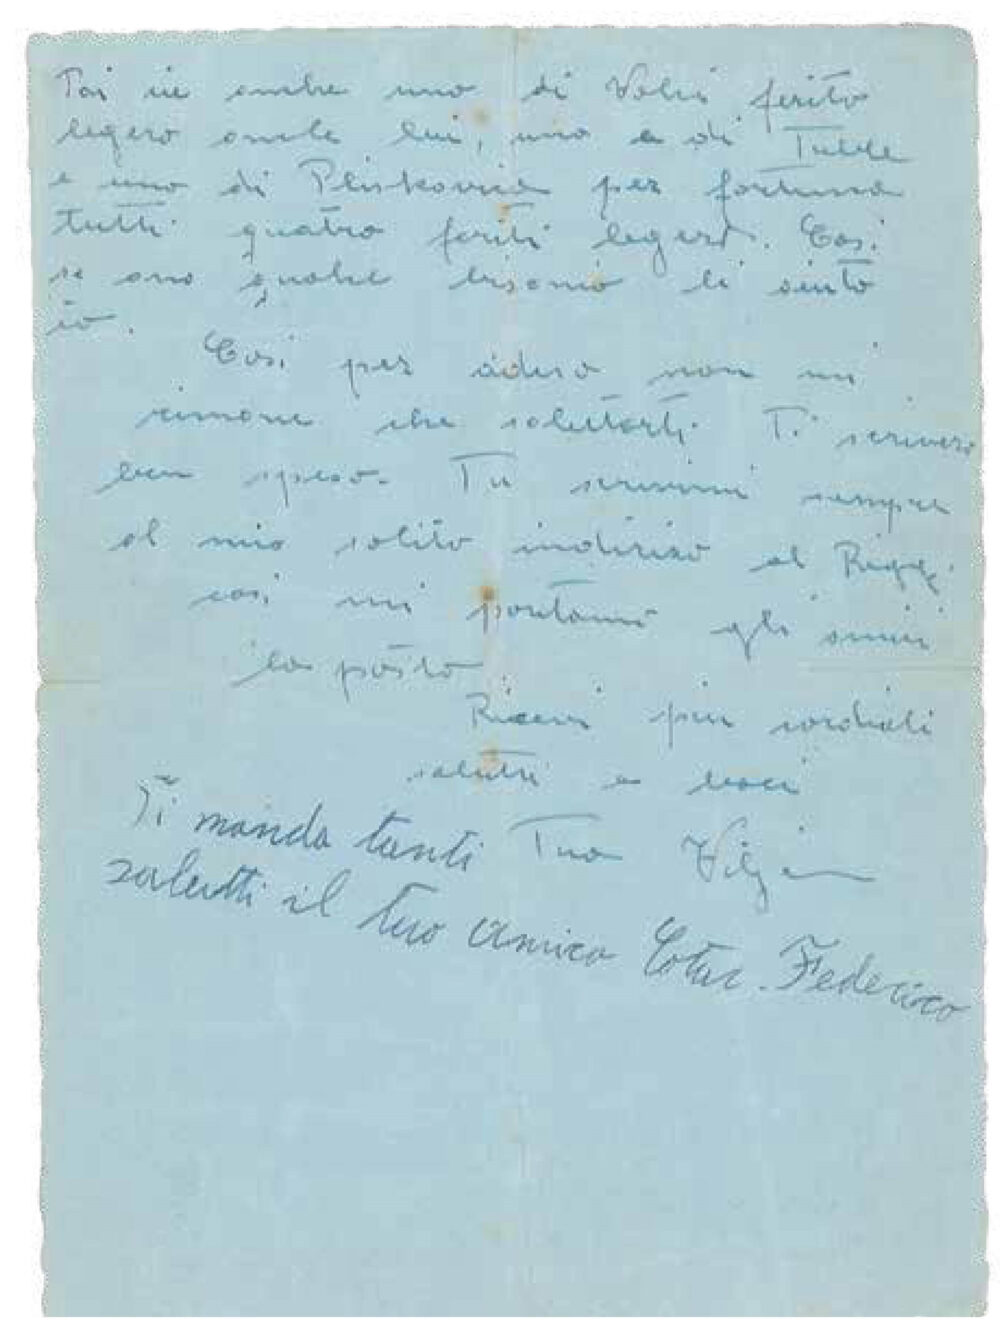 Poi ie anche uno di Volcí ferito
legero anche lui, uno e di
e uno di Pliskovica per fortuna
tutti quatro feriti legero. Cosi
se ano qualre bisonio li aiuto
io.
Cosi per adeso non mi
rimane che salutarti. Ti scrivero
ben speso. Tu scrivimi sempre
al mio solito indiriso al Riggi
cosi mi portano gli amici
la posta
Ricevi piu cordiali
saluti e baci
Tuo
Ti manda tanti
salutti il tuo amico Cotar. Federico